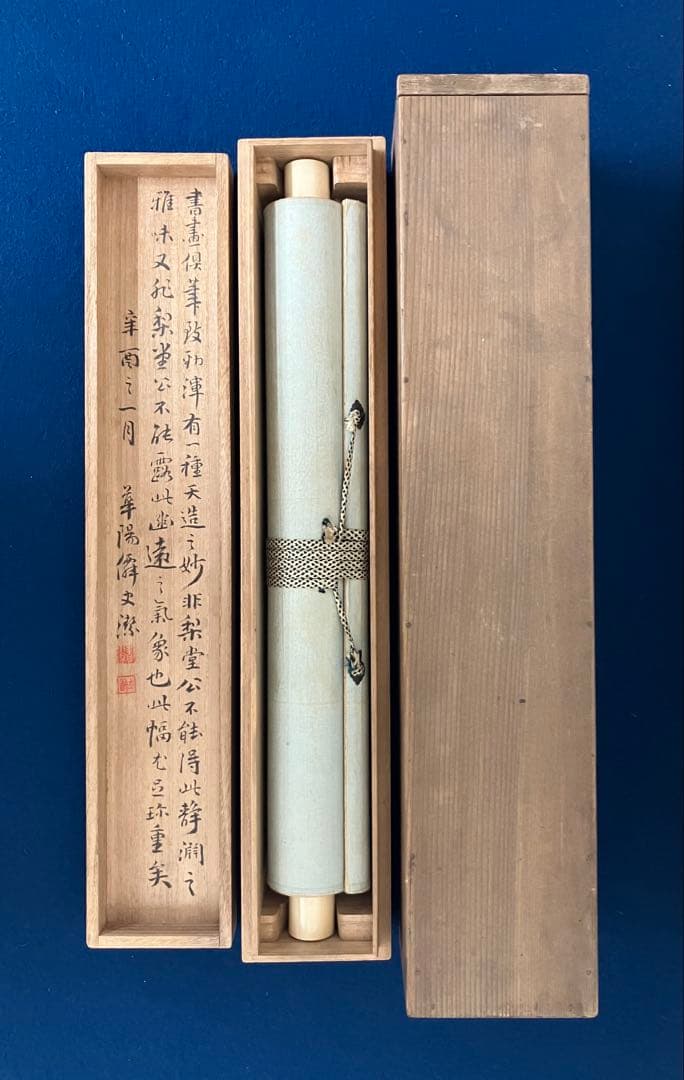 書畫俱筆致勁渾有一種天造之妙非梨堂公不能得此静淵之
雅味又非梨堂公不能露此幽遠之氣象也此幅尤足珍重矣
辛酉之一月 華陽僊史潔